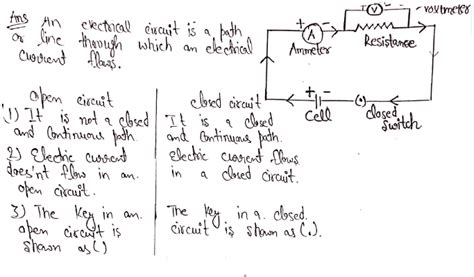 Ans An electrical circuit is a path
or line through which an electrical
current flows.
+ -
A
Ammeter
V
- voltmeter
Resistance
+ -
Cell
closed
switch
open circuit
1) It is not a closed
and continuous path.
2) Electric current
does'nt flow in an
open circuit.
3) The Key in an
open circuit is
shown as ( )
closed circuit
It is a closed
and continuous path.
electric current flows
in a closed circuit.
The Key in a closed
circuit is shown as (.).